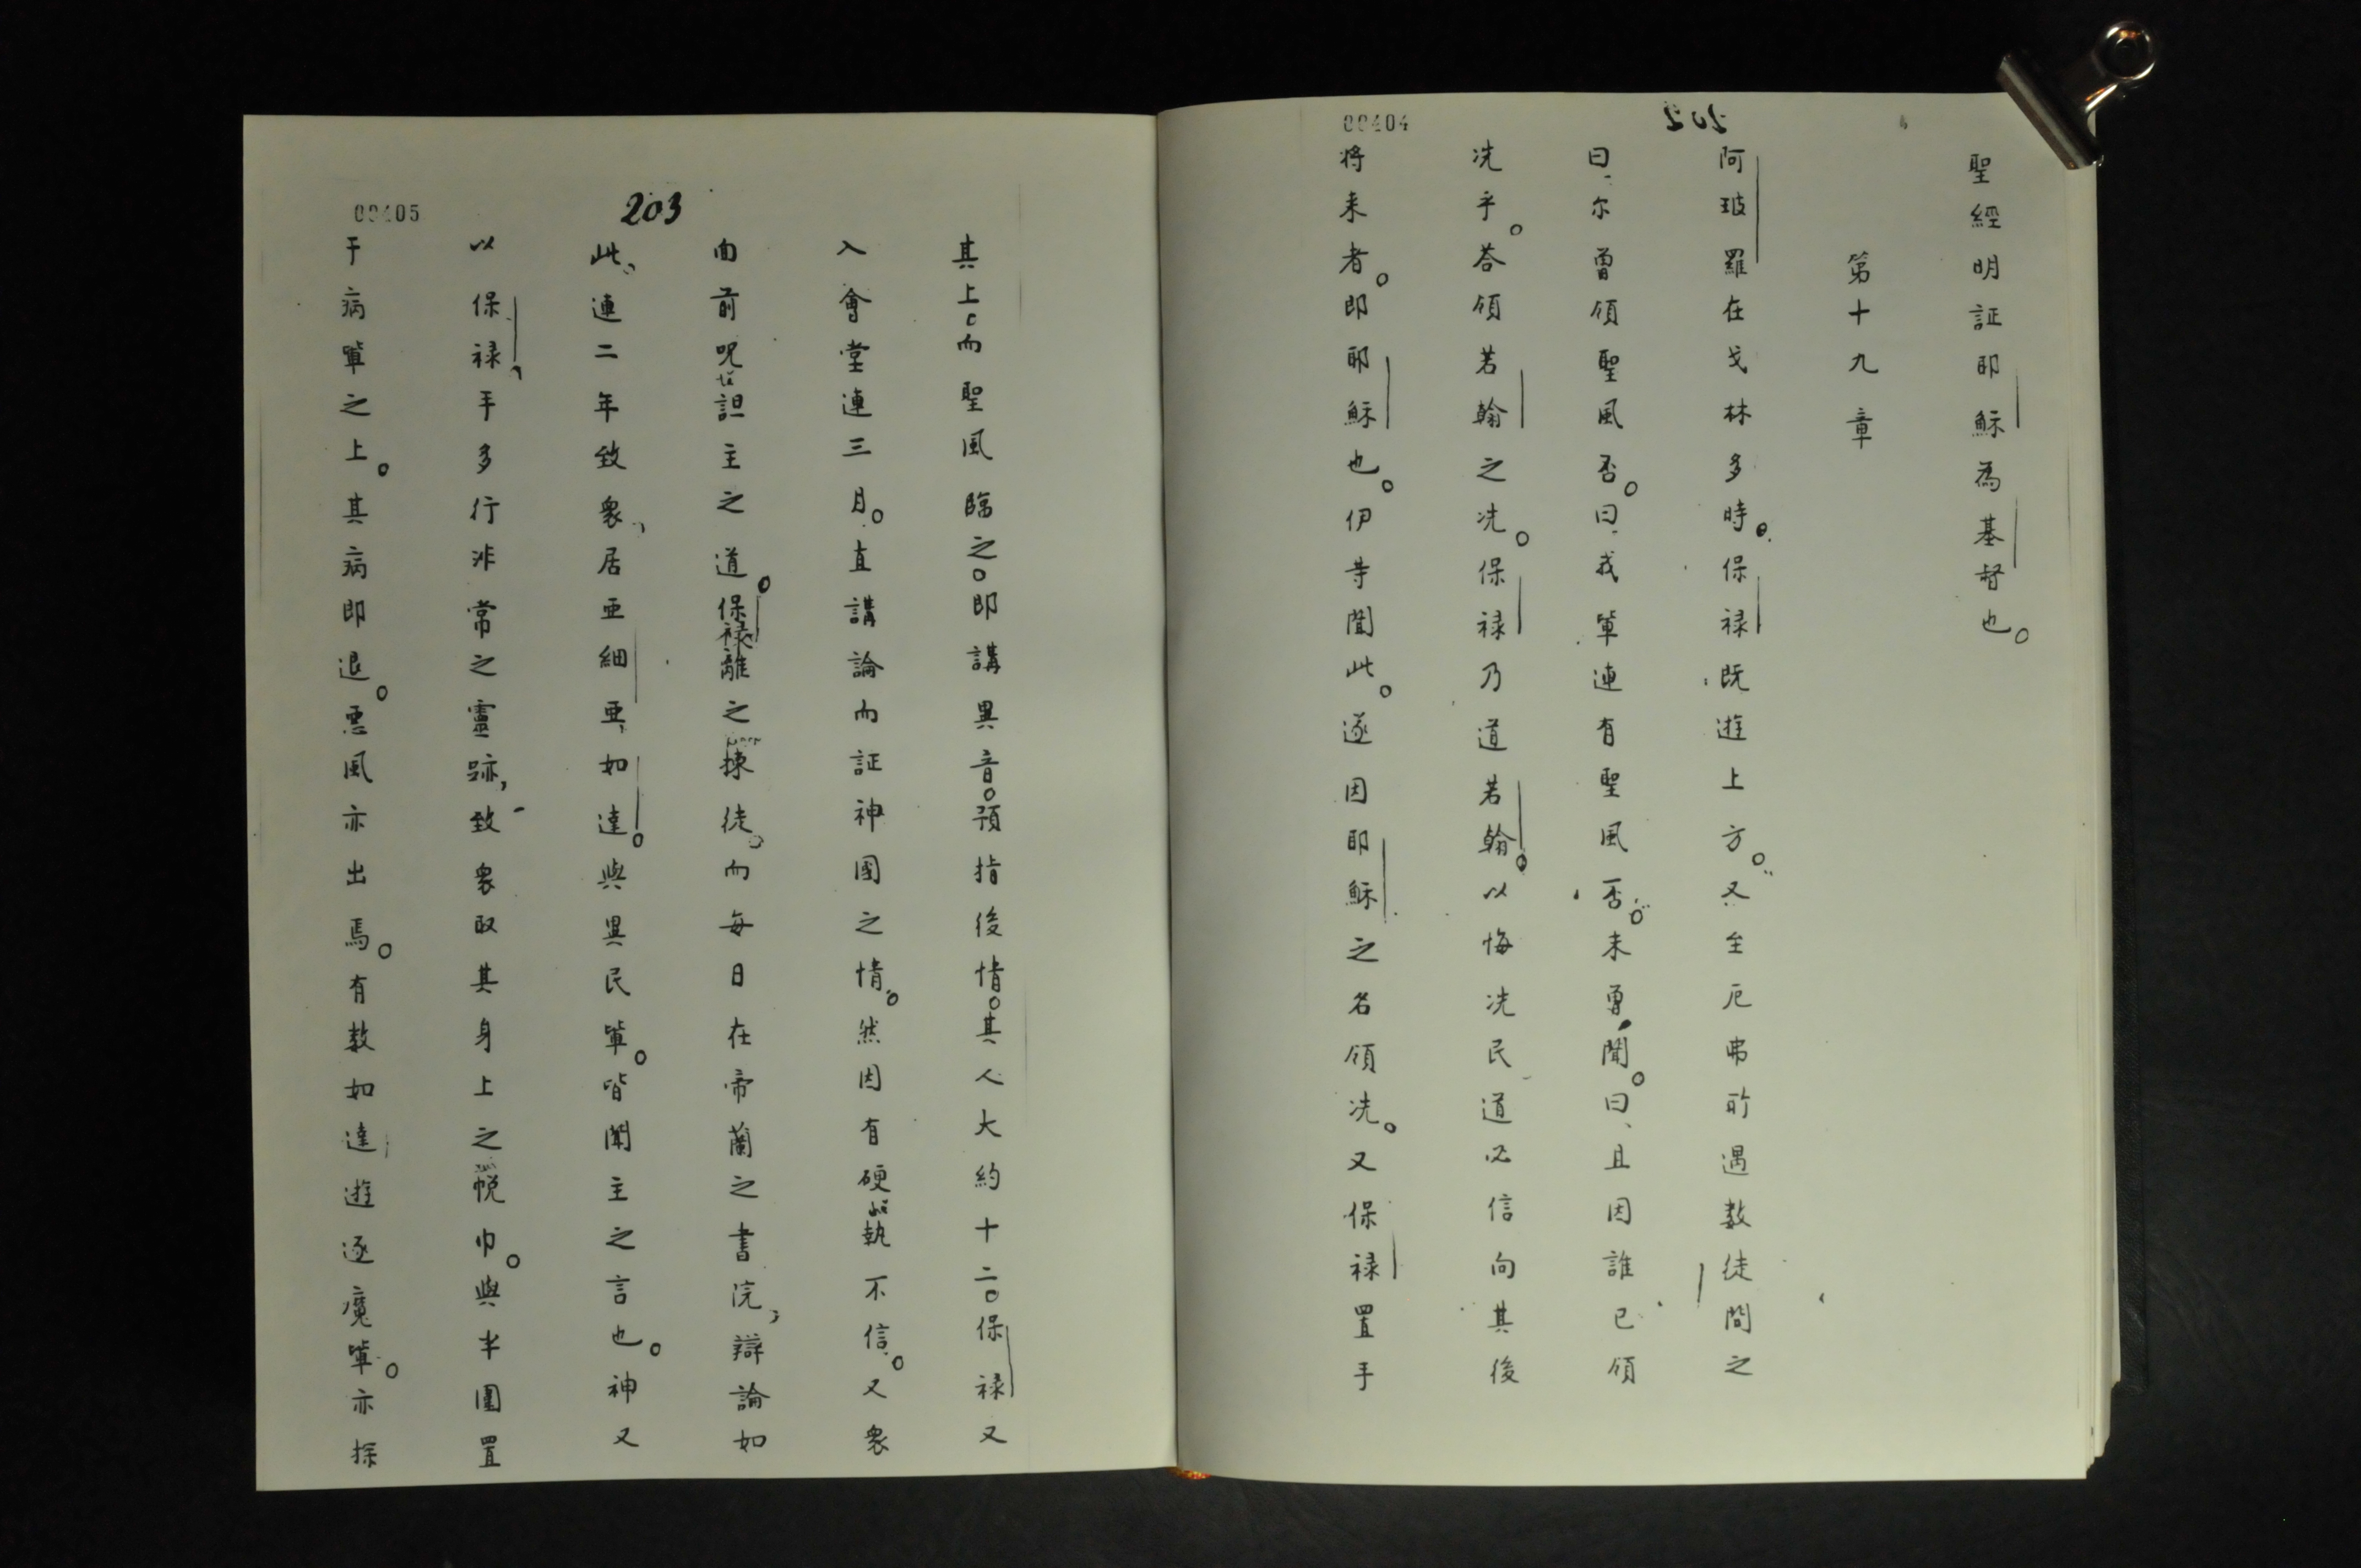 00404
202
聖經明証耶穌為基督也。
第十九章
阿玻羅在戈林多時。保禄既逰上方。又至厄弗所遇数徒問之
曰、尔曽領聖風否。曰、我軰連有聖風否。未曽聞。曰、且因誰已領
洗乎。荅領若翰之洗。保禄乃道若翰。以悔洗民道必信向其後
将来者。即耶穌也。伊等聞此。遂因耶穌之名領洗。又保禄置手
00405
203
其上。而聖風臨之。即講異音。預指後情。其人大約十二。保禄又
入會堂連三月。直講論而証神國之情。然因有硬執不信。又衆
面前呪詛主之道。保禄離之揀徒。而每日在帝蘭之書院，辯論如
此，連二年致衆，居亜細亜，如達。與異民軰。皆聞主之言也。神又
以保禄，手多行非常之靈跡，致衆取其身上之帨巾。與半圍置
于病軰之上。其病即退。悪風亦出焉。有数如達逰逐魔軰。亦探